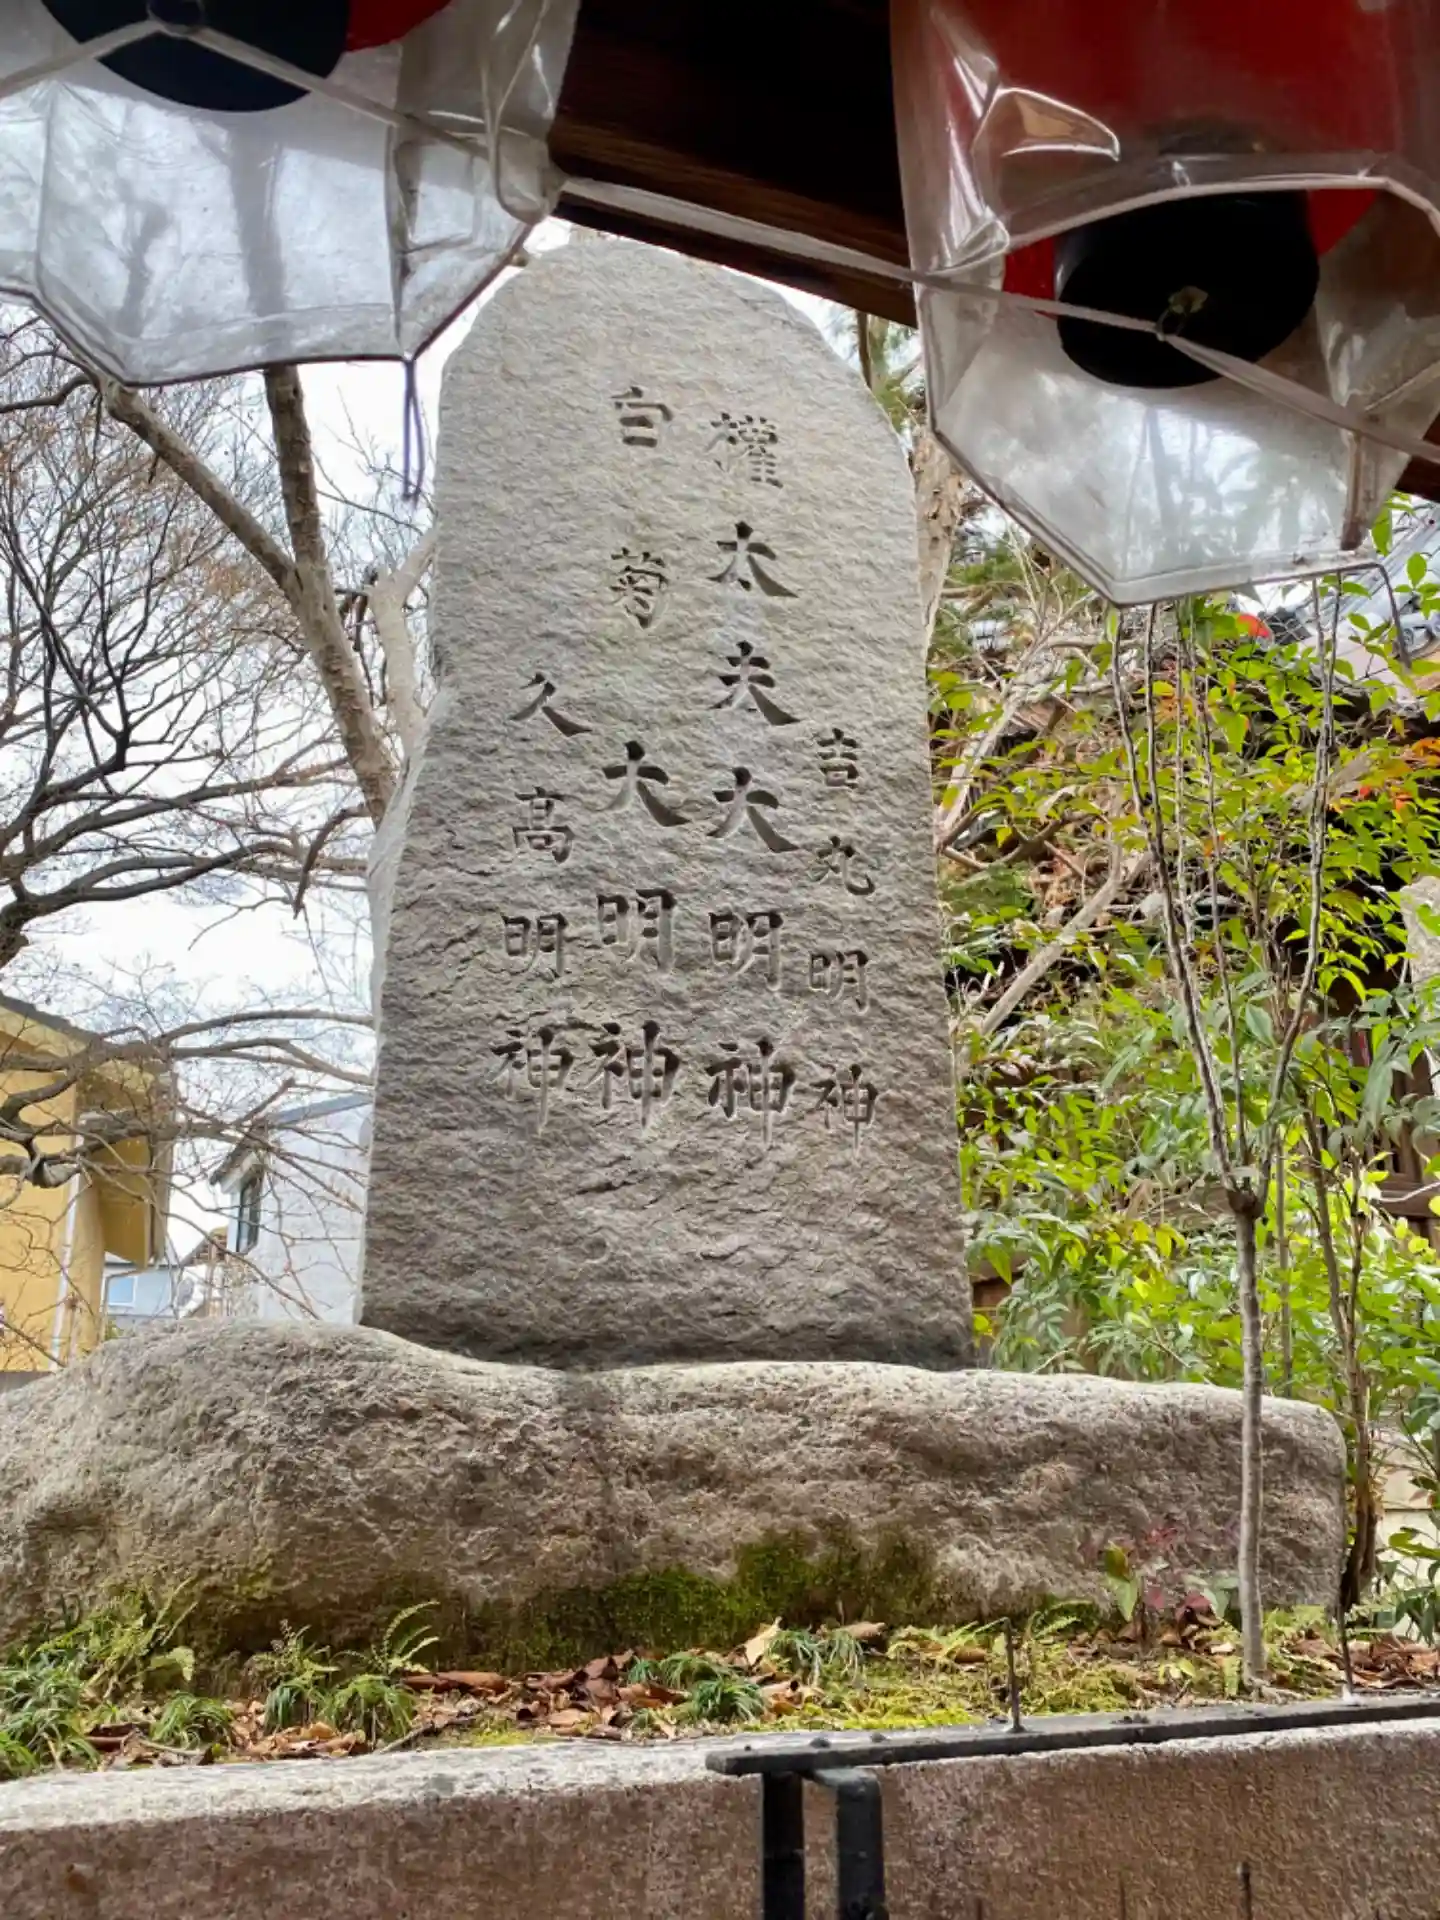 吉丸明神
權太夫大明神
白菊大明神
久高明神